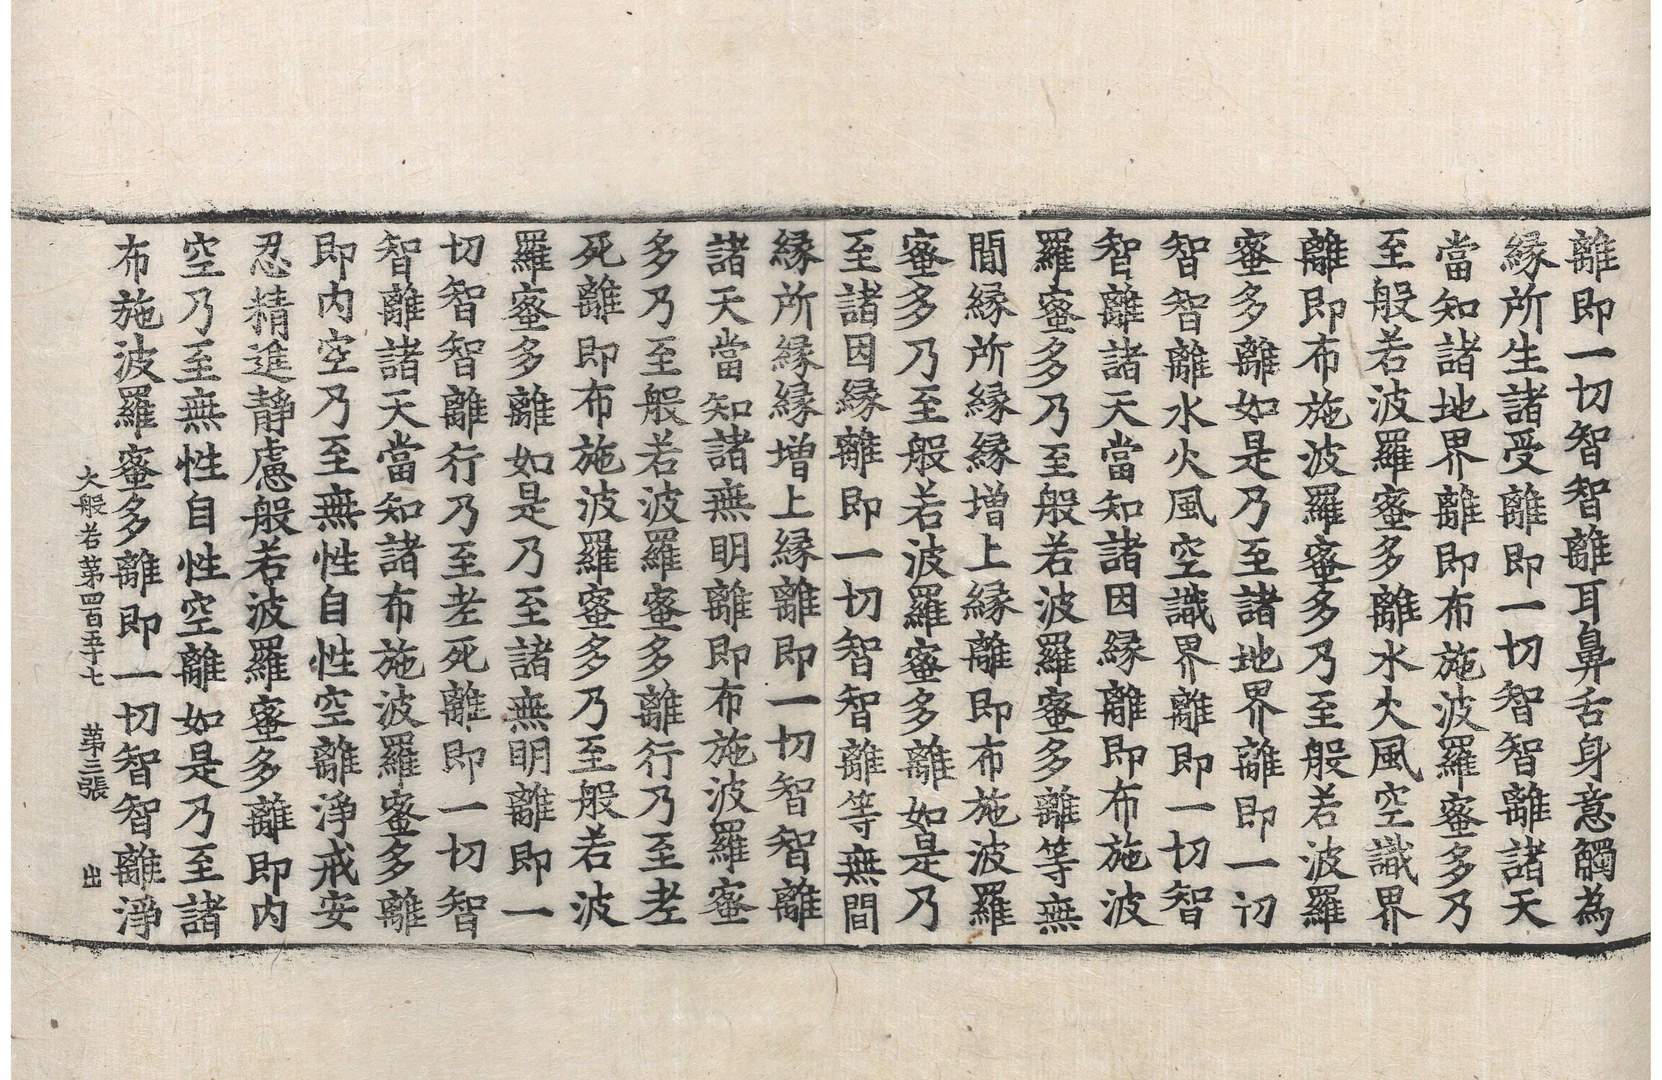 離即一切智智離耳鼻舌身意觸為
縁所生諸受離即一切智智離諸天
當知諸地界離即布施波羅蜜多乃
至般若波羅蜜多離水火風空識界
離即布施波羅蜜多乃至般若波羅
蜜多離如是乃至諸地界離即一切
智智離水火風空識界離即一切智
智離諸天當知諸因縁離即布施波
羅蜜多乃至般若波羅蜜多離等無
間縁所縁縁增上縁離即布施波羅
蜜多乃至般若波羅蜜多離如是乃
至諸因縁離即一切智智離等無間
縁所縁縁增上縁離即一切智智離
諸天當知諸無明離即布施波羅蜜
多乃至般若波羅蜜多離行乃至老
死離即布施波羅蜜多乃至般若波
羅蜜多離如是乃至諸無明離即一
切智智離行乃至老死離即一切智
智離諸天當知諸布施波羅蜜多離
即内空乃至無性自性空離淨戒安
忍精進靜慮般若波羅蜜多離即内
空乃至無性自性空離如是乃至諸
布施波羅蜜多離即一切智智離淨
大般若第四百五十七 第三張 出